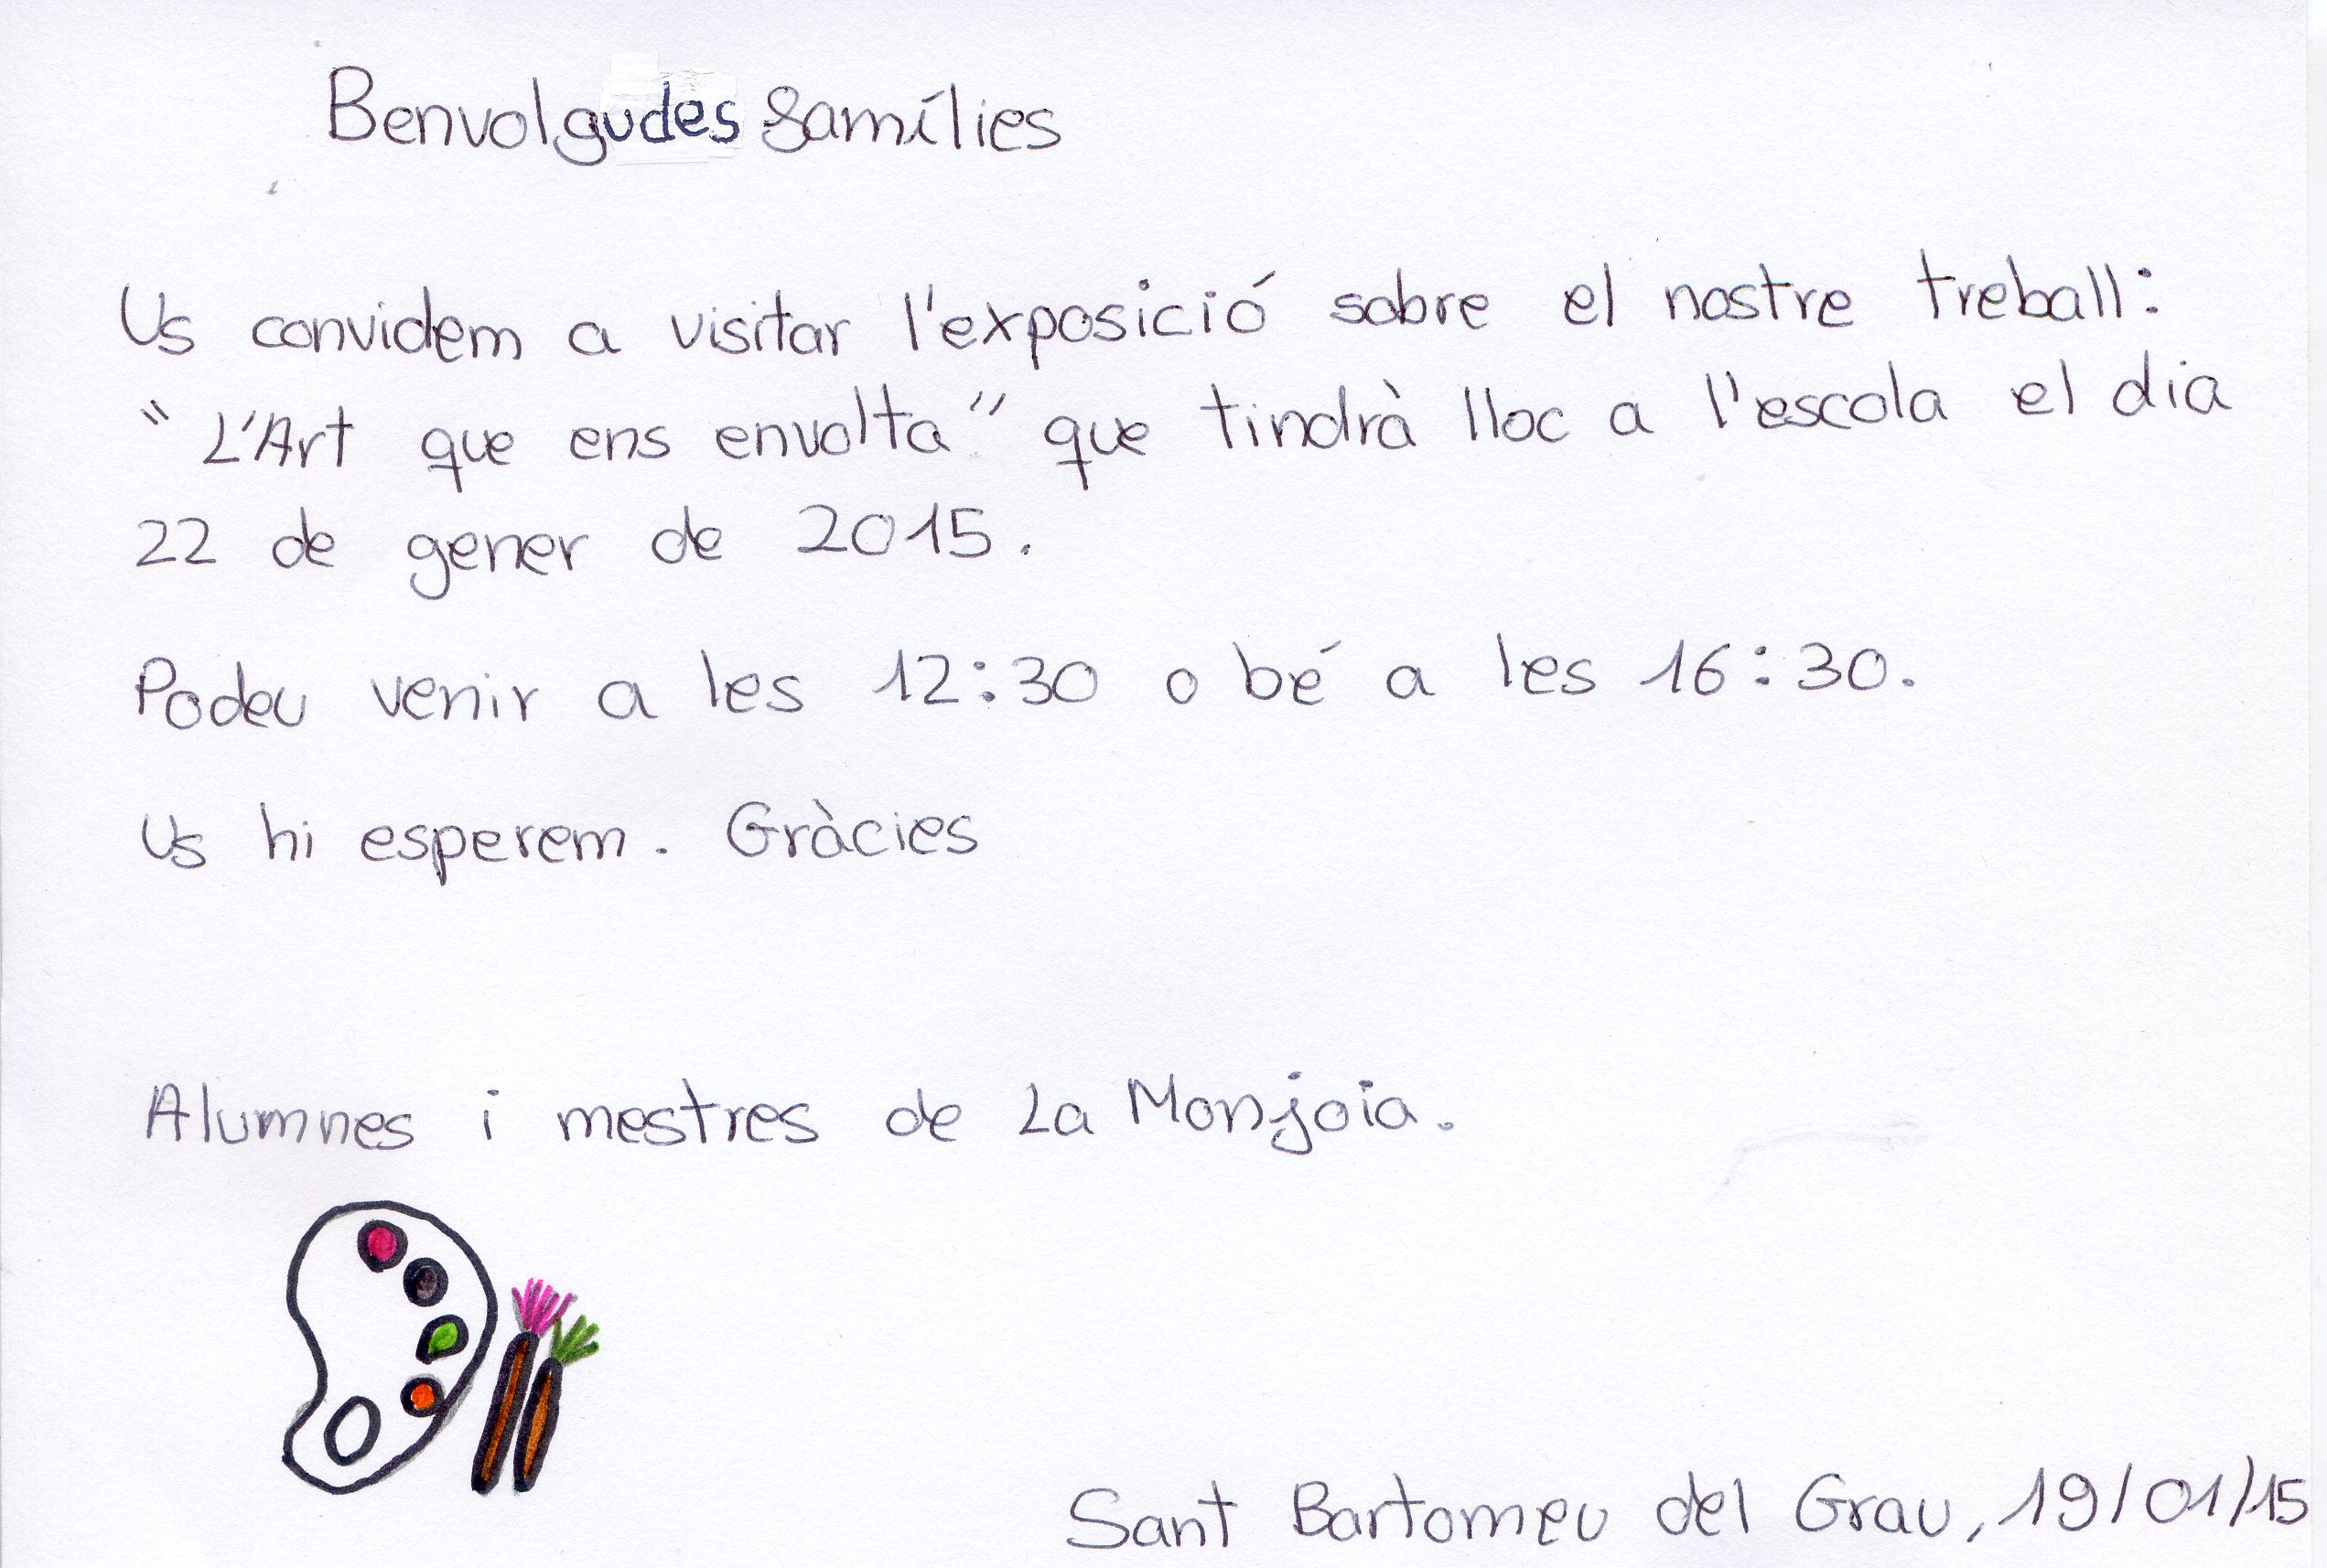 Benvolgudes famílies
Us convidem a visitar l'exposició sobre el nostre treball:
"L'Art que ens envolta" que tindrà lloc a l'escola el dia
22 de gener de 2015.
Podeu venir a les 12:30 o bé a les 16:30.
Us hi esperem. Gràcies
Alumnes i mestres de La Monjoia.
Sant Bartomeu del Grau, 19/01/15